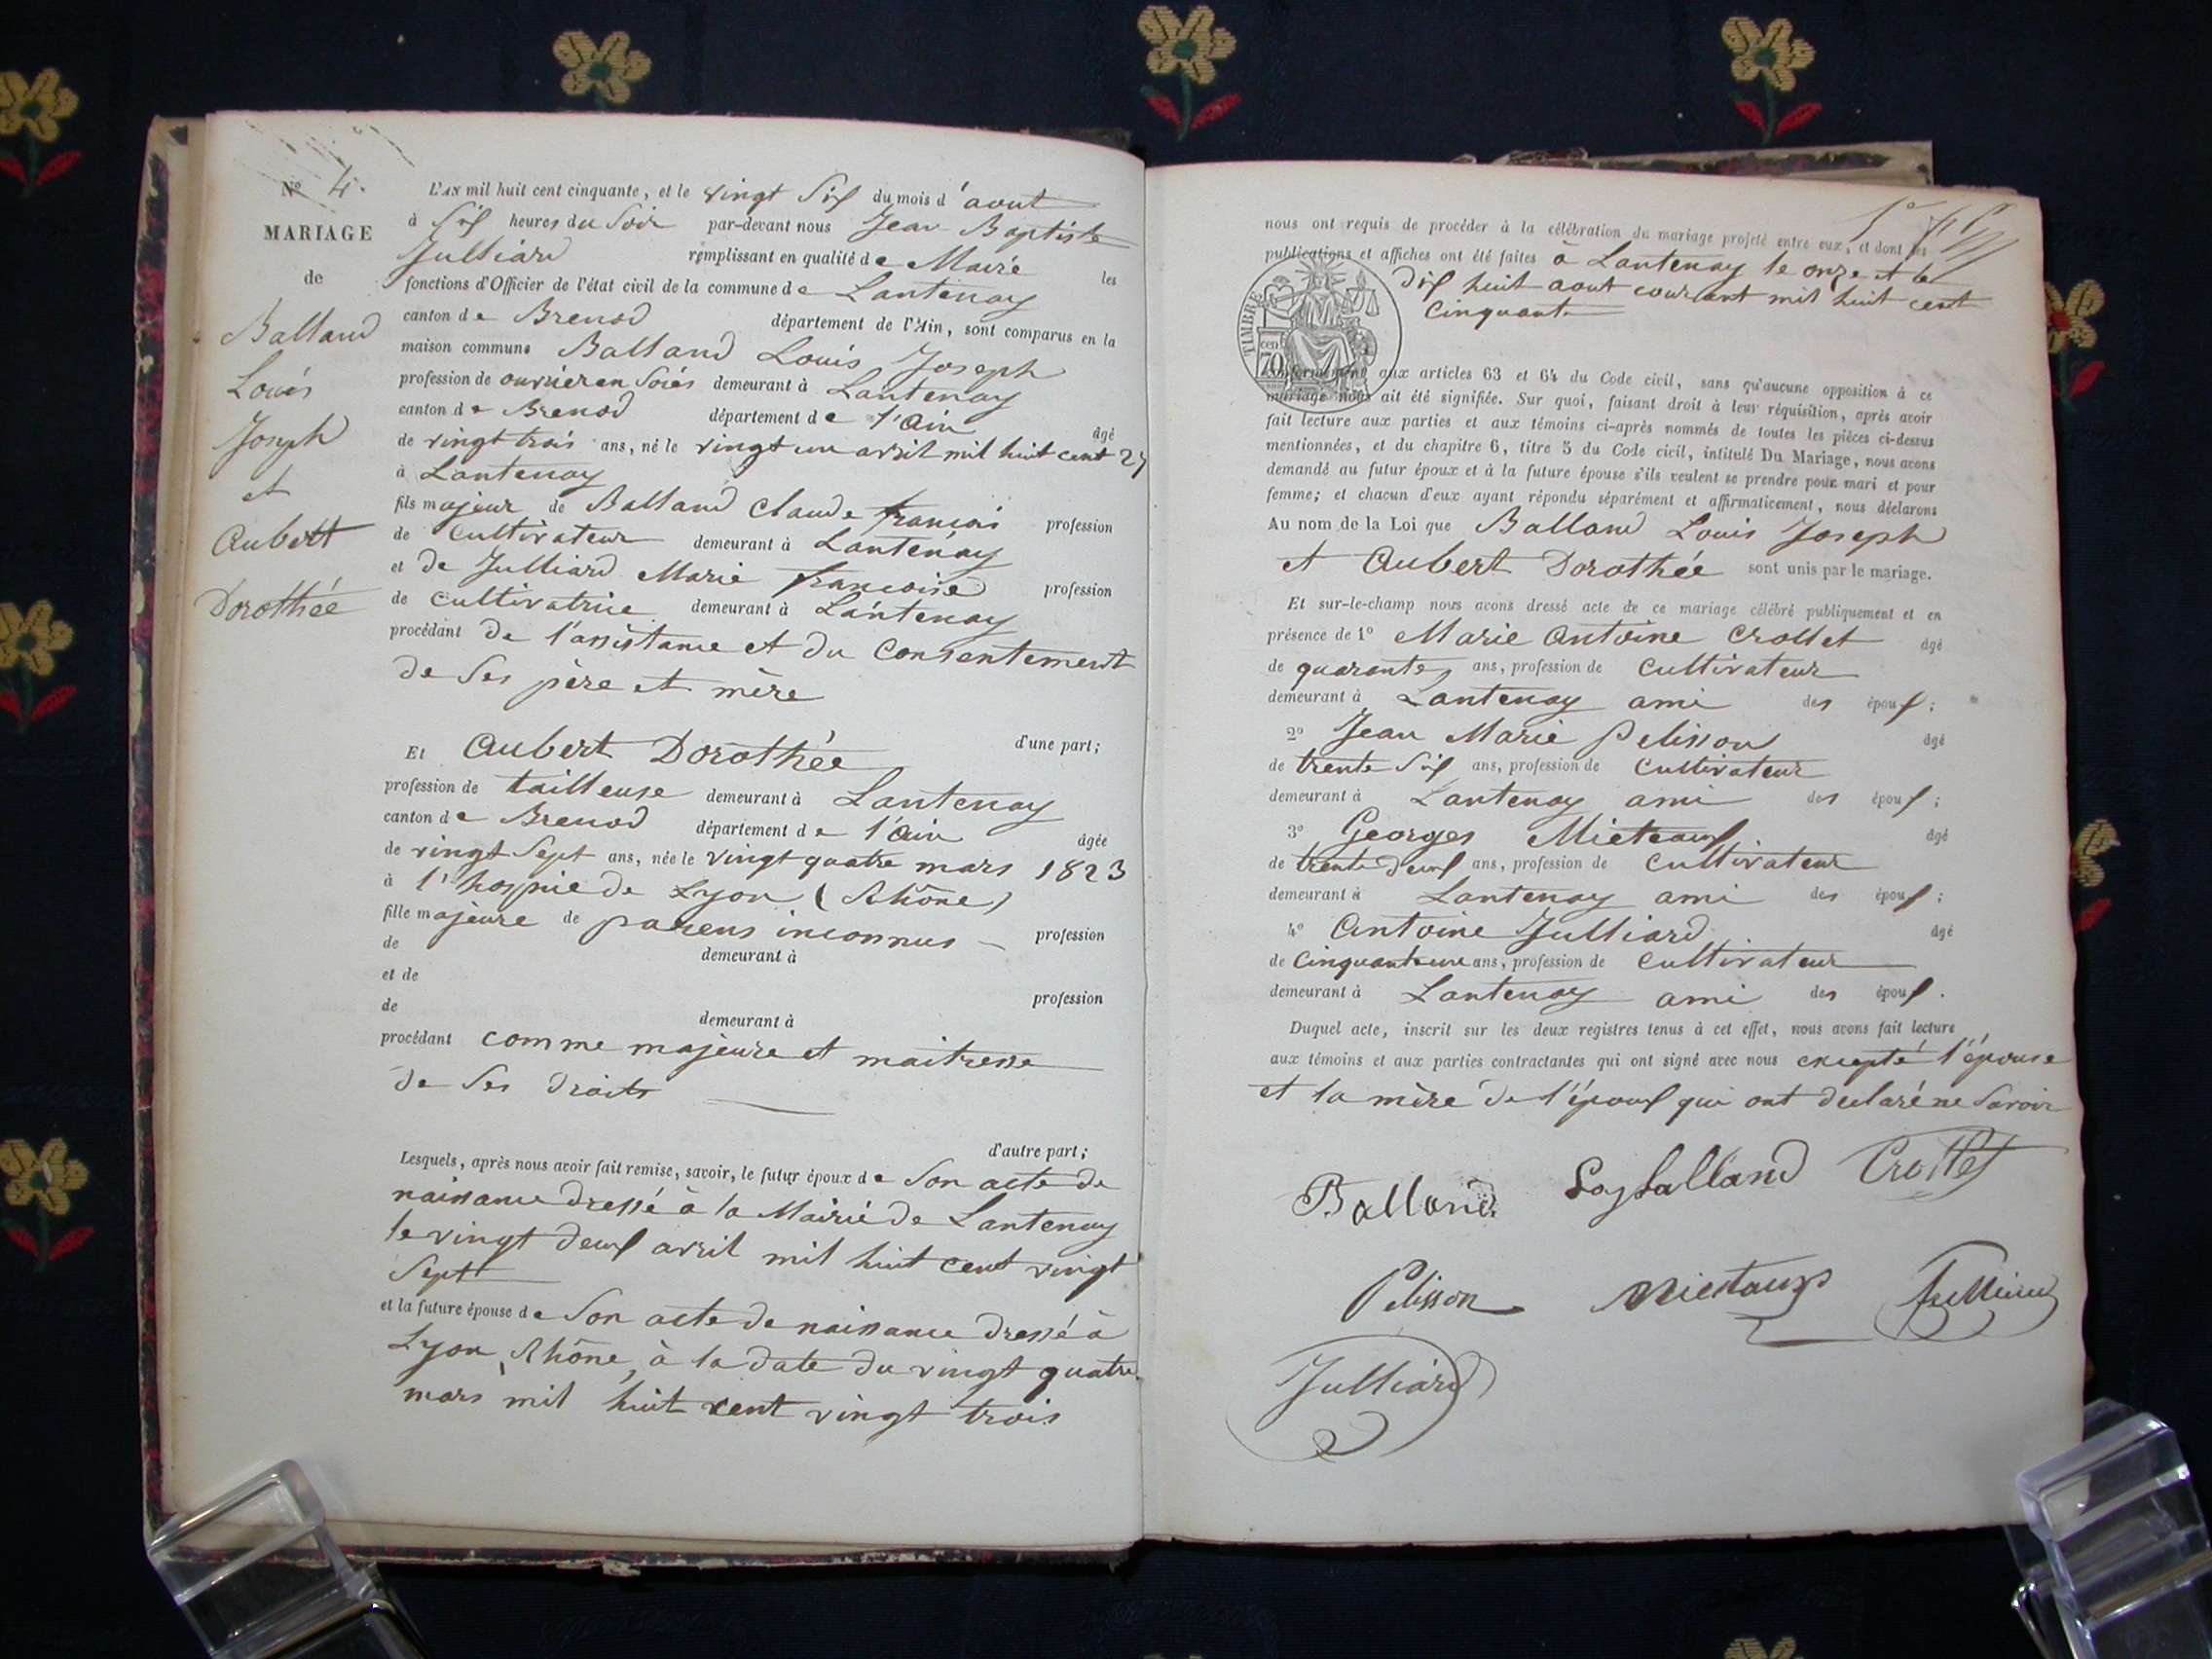 N° 4.
MARIAGE
de
Balland
Louis
Joseph
et
Aubert
Dorothée
L'AN mil huit cent cinquante, et le vingt Six du mois d'aout
à Six heures du Soir par-devant nous Jean Baptiste
Julliard remplissant en qualité de Maire les
fonctions d'Officier de l'état civil de la commune de Lantenay
canton de Brenod département de l'Ain, sont comparus en la
maison commune Balland Louis Joseph
profession de ouvrier en Soies demeurant à Lantenay
canton de Brenod département de l'Ain âgé
de vingt trois ans, né le vingt un avril mil huit cent 27
à Lantenay
fils majeur de Balland Claude françois profession
de Cultivateur demeurant à Lantenay
et de Julliard Marie françoise profession
de Cultivatrice demeurant à Lantenay
procédant de l'assistance et du Consentement
de Ses père et mère
d'une part;
Et Aubert Dorothée
profession de tailleuse demeurant à Lantenay
canton de Brenod département de l'Ain âgée
de vingt Sept ans, née le vingt quatre mars 1823
à l'hospice de Lyon (Rhône)
fille majeure de parens inconnus – profession
de demeurant à
et de profession
de demeurant à
procédant comme majeure et maitresse
de Ses droits
d'autre part;
Lesquels, après nous avoir fait remise, savoir, le futur époux de Son acte de
naissance dressé à la Mairie de Lantenay
le vingt deux avril mil huit cent vingt
Sept
et la future épouse de Son acte de naissance dressé à
Lyon, Rhône, à la date du vingt quatre
mars mil huit cent vingt trois
nous ont requis de procéder à la célébration du mariage projeté entre eux, et dont les
publications et affiches ont été faites à Lantenay le onze et le
dix huit aout courant mil huit cent
Cinquante
TIMBRE
cen
70
Conformément aux articles 63 et 64 du Code civil, sans qu'aucune opposition à ce
mariage nous ait été signifiée. Sur quoi, faisant droit à leur réquisition, après avoir
fait lecture aux parties et aux témoins ci-après nommés de toutes les pièces ci-dessus
mentionnées, et du chapître 6, titre 5 du Code civil, intitulé Du Mariage, nous avons
demandé au futur époux et à la future épouse s'ils veulent se prendre pour mari et pour
femme; et chacun d'eux ayant répondu séparément et affirmativement, nous déclarons
Au nom de la Loi que Balland Louis Joseph
et Aubert Dorothée sont unis par le mariage.
Et sur-le-champ nous avons dressé acte de ce mariage célébré publiquement et en
présence de 1° Marie Antoine Crollet âgé
de quarante ans, profession de Cultivateur
demeurant à Lantenay ami des époux;
2° Jean Marie Pelisson âgé
de trente Six ans, profession de Cultivateur
demeurant à Lantenay ami des époux;
3° Georges Mietaux âgé
de trente deux ans, profession de Cultivateur
demeurant à Lantenay ami des époux;
4° Antoine Julliard âgé
de Cinquante une ans, profession de Cultivateur
demeurant à Lantenay ami des époux.
Duquel acte, inscrit sur les deux registres tenus à cet effet, nous avons fait lecture
aux témoins et aux parties contractantes qui ont signé avec nous excepté l'épouse
et la mère de l'époux qui ont déclaré ne Savoir
Balland Crollet
Pelisson Mietaux Julliard
Julliard